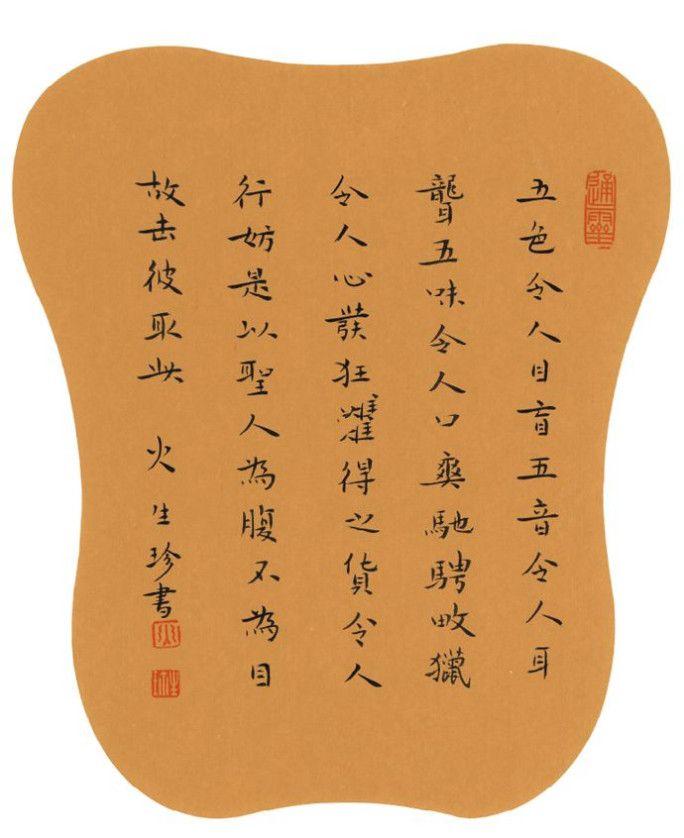 五色令人目盲五音令人耳
聾五味令人口爽馳騁畋獵
令人心發狂難得之貨令人
行妨是以聖人為腹不為目
故去彼取此 火生珍書